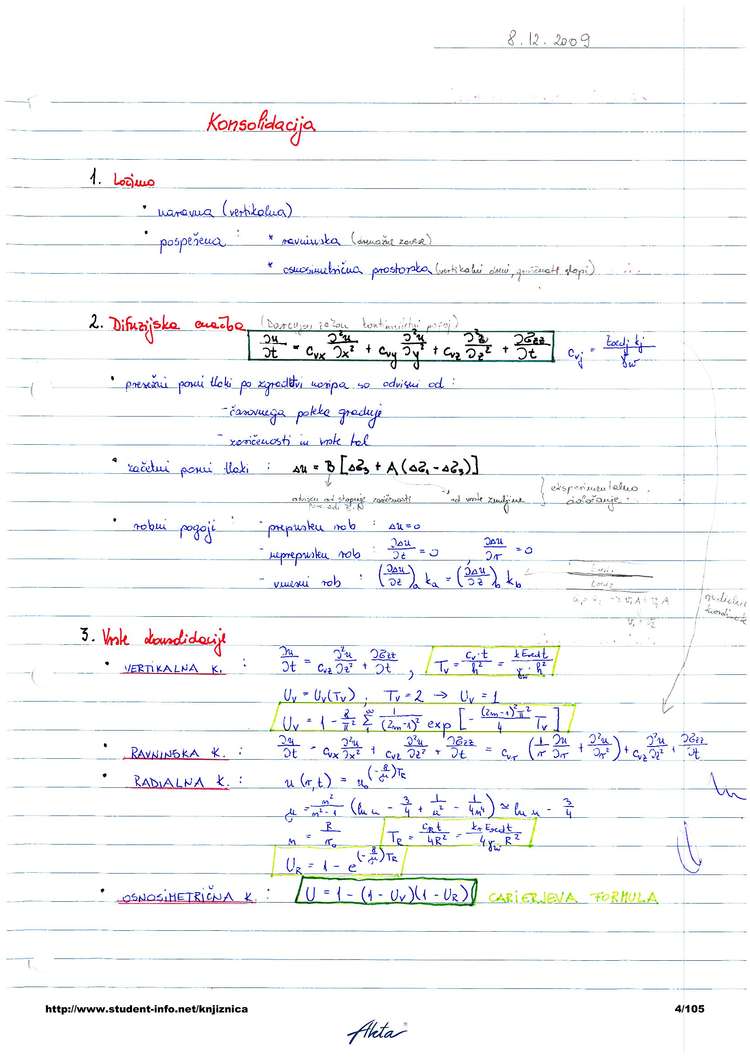 8.12.2009
Konsolidacija
1. Ločimo
• naravna (vertikalna)
• pospešena : * ravninska (drenažni zavesa)
* osnosimetrična prostorska (vertikalni dreni, gruščnati slopi)
2. Difuzijska enačba (Darcyjev zakon kontinuitetni pogoj)
∂u/∂t = c_vx ∂²u/∂x² + c_vy ∂²u/∂y² + c_vz ∂²u/∂z² + ∂σ_zz/∂t c_vj = E_oedj k_j / γ_w
• presežni porni tlaki po zgraditvi nasipa so odvisni od :
- časovnega poteka gradnje
- zasičenosti in vrste tal
• začetni porni tlaki : Δu = B [Δσ₃ + A (Δσ₁ - Δσ₃)]
odvisen od stopnje zasičenosti od vrste zemljine } eksperimentalno
določanje
• robni pogoji : - prepusten rob : Δu = 0
- neprepusten rob : ∂Δu/∂z = 0 ∂Δu/∂r = 0
- vmesni rob : (∂Δu/∂z)_a k_a = (∂Δu/∂z)_b k_b
3. Vrste konsolidacije
• VERTIKALNA K. : ∂u/∂t = c_vz ∂²u/∂z² + ∂σ_zz/∂t , T_v = c_v·t/h² = k E_oed t / γ_w h²
U_v = U_v(T_v) , T_v = 2 → U_v = 1
U_v = 1 - 8/π² Σ^∞ 1/(2m-1)² exp [- (2m-1)²π²/4 T_v]
• RAVNINSKA K. : ∂u/∂t = c_vx ∂²u/∂x² + c_vz ∂²u/∂z² + ∂σ_zz/∂t = c_vr (1/r ∂u/∂r + ∂²u/∂r²) + c_vz ∂²u/∂z² + ∂σ_zz/∂t
• RADIALNA K. : u(r,t) = u₀^(-8/μ)T_R
μ = n²/(n²-1) (ln n - 3/4 + 1/n² - 1/4n⁴) ≈ ln n - 3/4
n = R/r₀ T_R = c_R t/4R² = k_r E_oed t / 4γ_w R²
U_R = 1 - e^(-8/μ)T_R
• OSNOSIMETRIČNA K. : U = 1 - (1 - U_v)(1 - U_R) CARIERJEVA FORMULA
http://www.student-info.net/knjiznica 4/105
Akta